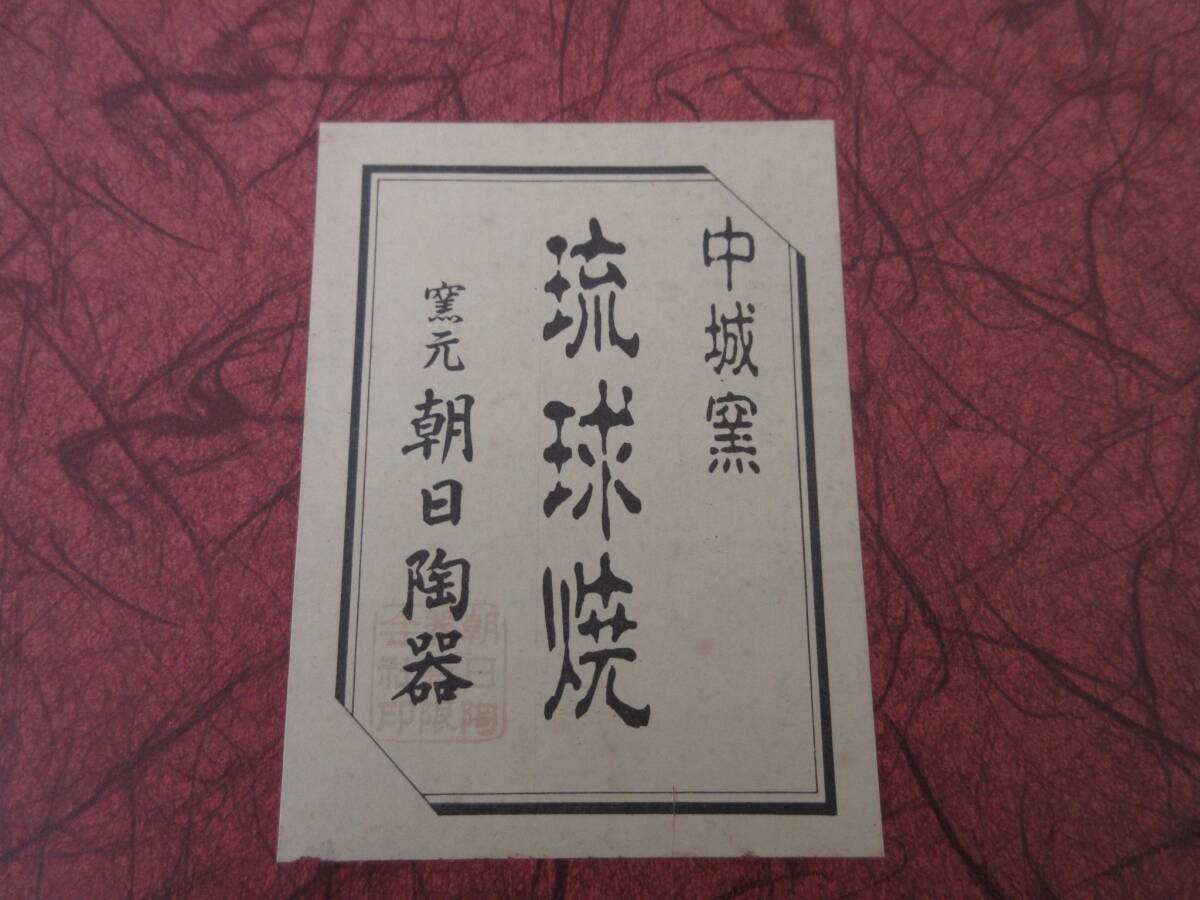 中城窯
琉球焼
窯元 朝日陶器
朝日陶
器 限
会社印